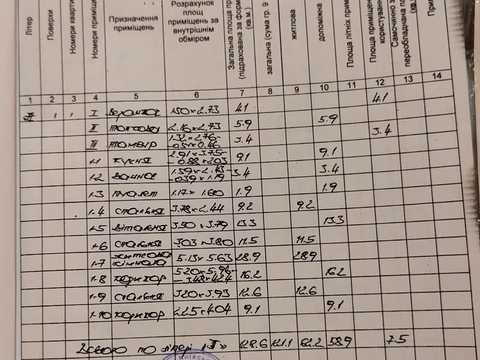 Літер
Поверхи
Номери приміщень
Призначення приміщень
Розрахунок площ приміщень за внутрішнім обміром
Загальна площа
загальна (сума гр. 9
житлова
допоміжна
Площа літніх приміщень
Площа приміщень
користування
Самочинно
переобладнана площа
1 2 3 4 5 6 7 8 9 10 11 12 13 14
I 1.50×2.73 4.1 4.1
II 2.16×2.73 5.9 5.9
III 3.4 3.4
1-1 Кухня 2.91×3.75- 9.1 9.1
1-2 Ванна 1.59×2.43- 3.4 3.4
1-3 Туалет 1.17×1.60 1.9 1.9
1-4 Спальня 3.78×2.44 9.2 9.2
1-5 Вітальня 3.50×3.79 13.3 13.3
1-6 Спальня 3.03×3.80 11.5 11.5
1-7 Житлова кімната 5.13×5.63 28.9 28.9
1-8 Коридор 5.20×5.96- 3.48×4.24 16.2 16.2
1-9 Спальня 3.20×3.93 12.6 12.6
1-10 Коридор 2.25×4.04 9.1 9.1
Всього по літері 128.6 121.1 62.2 58.9 7.5